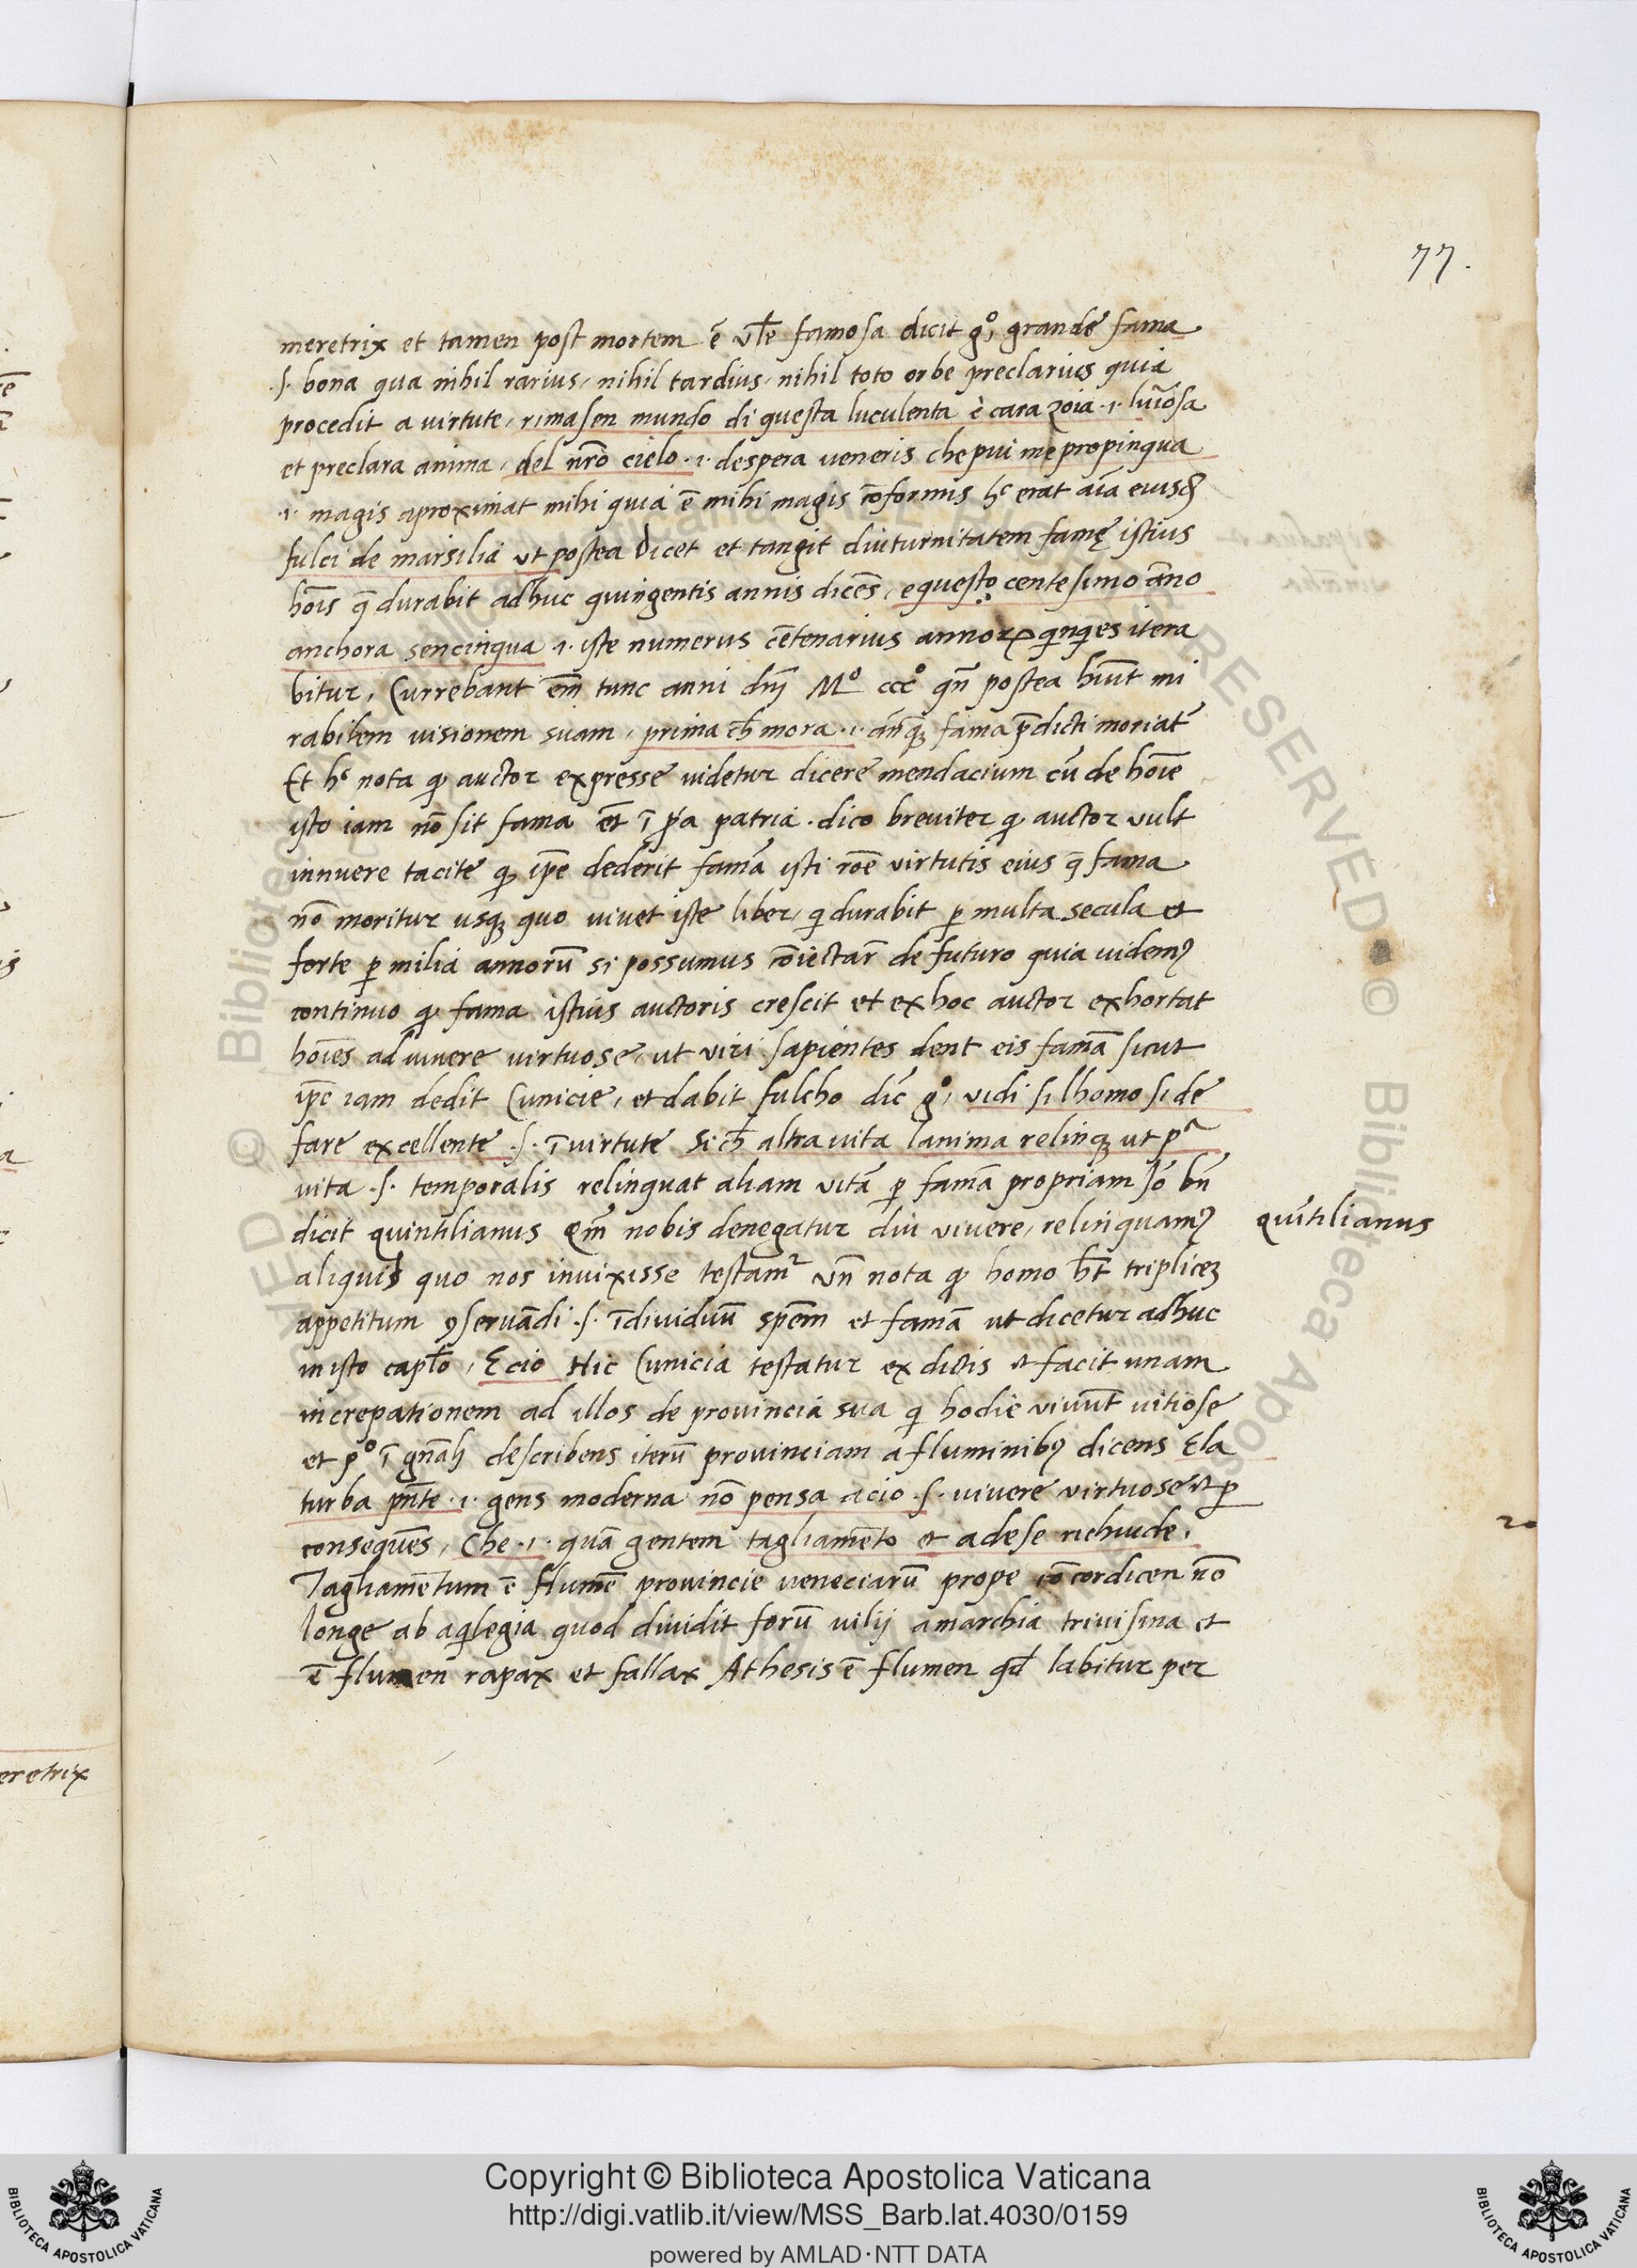 77.
meretrix et tamen post mortem ē vłe famosa dicit gͦ, grande fama
.s. bona qua nihil rarius, nihil tardius, nihil toto orbe preclarius quia
procedit a virtute, rimasen mundo di questa luculenta è cara zoia .i. luīosa
et preclara anima, del nr̄o cielo .i. despera veneris che pui me propinqua
.i. magis aproximat mihi quia ē mihi magis cōformis hͨ erat aīa eiusđ
fulci de marsilia ut postea dicet et tangit diuturnitatem famę istius
hoīs q̄ durabit adhuc quingentis annis dicēs, e questo centesimo āno
anchora sencinqua .i. iste numerus cētenarius annoꝝ qinqies itera
bitur, Currebant em̄ tunc anni dn̄j Mͦ cccͦ qn̄ postea hūit mi
rabilem visionem suam, prima ch̄ mora .i. ānqꝫ fama p̄dicti moriat̄
Et hͨ nota ꝙ auctor expresse videtur dicere mendacium cū de hoīe
isto iam nō sit fama et̄ ī p̄a patria . dico breviter ꝙ auctor vult
innuere tacite ꝙ ip̄e dederit famā isti rōe virtutis eius q̄ fama
nō moritur usqꝫ quo vivet iste liber, qi durabit ꝑ multa secula et
forte ꝑ milia annorū si possumus cōiectar̄ de futuro quia videmꝰ
continuo ꝙ fama istius auctoris crescit et ex hoc auctor exhortat
hoīes ad vivere virtuose, ut viri sapientes dent eis famā sicut
ip̄e iam dedit Cunicie, et dabit fulcho dic̄ gͦ, vidi si lhomo si de
fare excellente .s. ī virtute Si ch̄ altra vita lanima relinqꝫ ut pᵃ
vita .s. temporalis relinquat aliam vitā ꝑ famā propriam Iō bn̄
dicit quintilianus Qm̄ nobis denegatur diu vivere, relinquamꝰ
quītilianus
aliquid quo nos invixisse testamʳ Vn̄ nota ꝙ homo h̄t tripliceꝫ
appetitum ꝯservādi .s. īdividuū spēm et famā ut dicetur adhuc
in isto capł̄o, Ecio Hic Cunicia testatur ex dictis et facit unam
increpationem ad illos de provincia sua qi hodie vivūt vitiose
et pͦ ī gn̄ali describens iterū provinciam a fluminibꝰ dicens Ela
turba pn̄te .i. gens moderna nō pensa acio .s. vivere virtuose et ꝑ
consequēs, Che .i. quā gentem tagliamēto et adese richiude,
Tagliamētum ē flumē provincie veneciarū prope cōcordicen nō
longe ab aqilegia quod dividit forū vilij amarchia trivisina et
ē flumen rapax et fallax Athesis ē flumen qđ labitur per
20
eretrix
Copyright © Biblioteca Apostolica Vaticana
http://digi.vatlib.it/view/MSS_Barb.lat.4030/0159
powered by AMLAD·NTT DATA
BIBLIOTECA APOSTOLICA VATICANA
BIBLIOTECA APOSTOLICA VATICANA